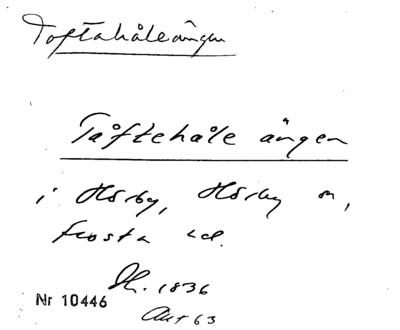 Toftahåleängen
Tåftehåle ängen
i Hörby, Hörby sn,
Frosta hd.
Sk. 1836
Nr 10446
Akt 63